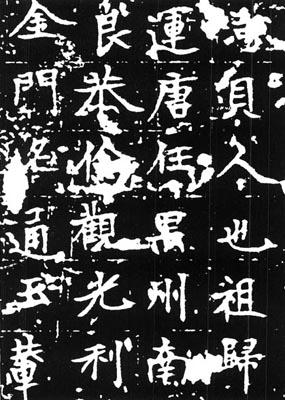 人也祖歸
運唐任果州南
良恭儉觀光利
金門名通玉輦